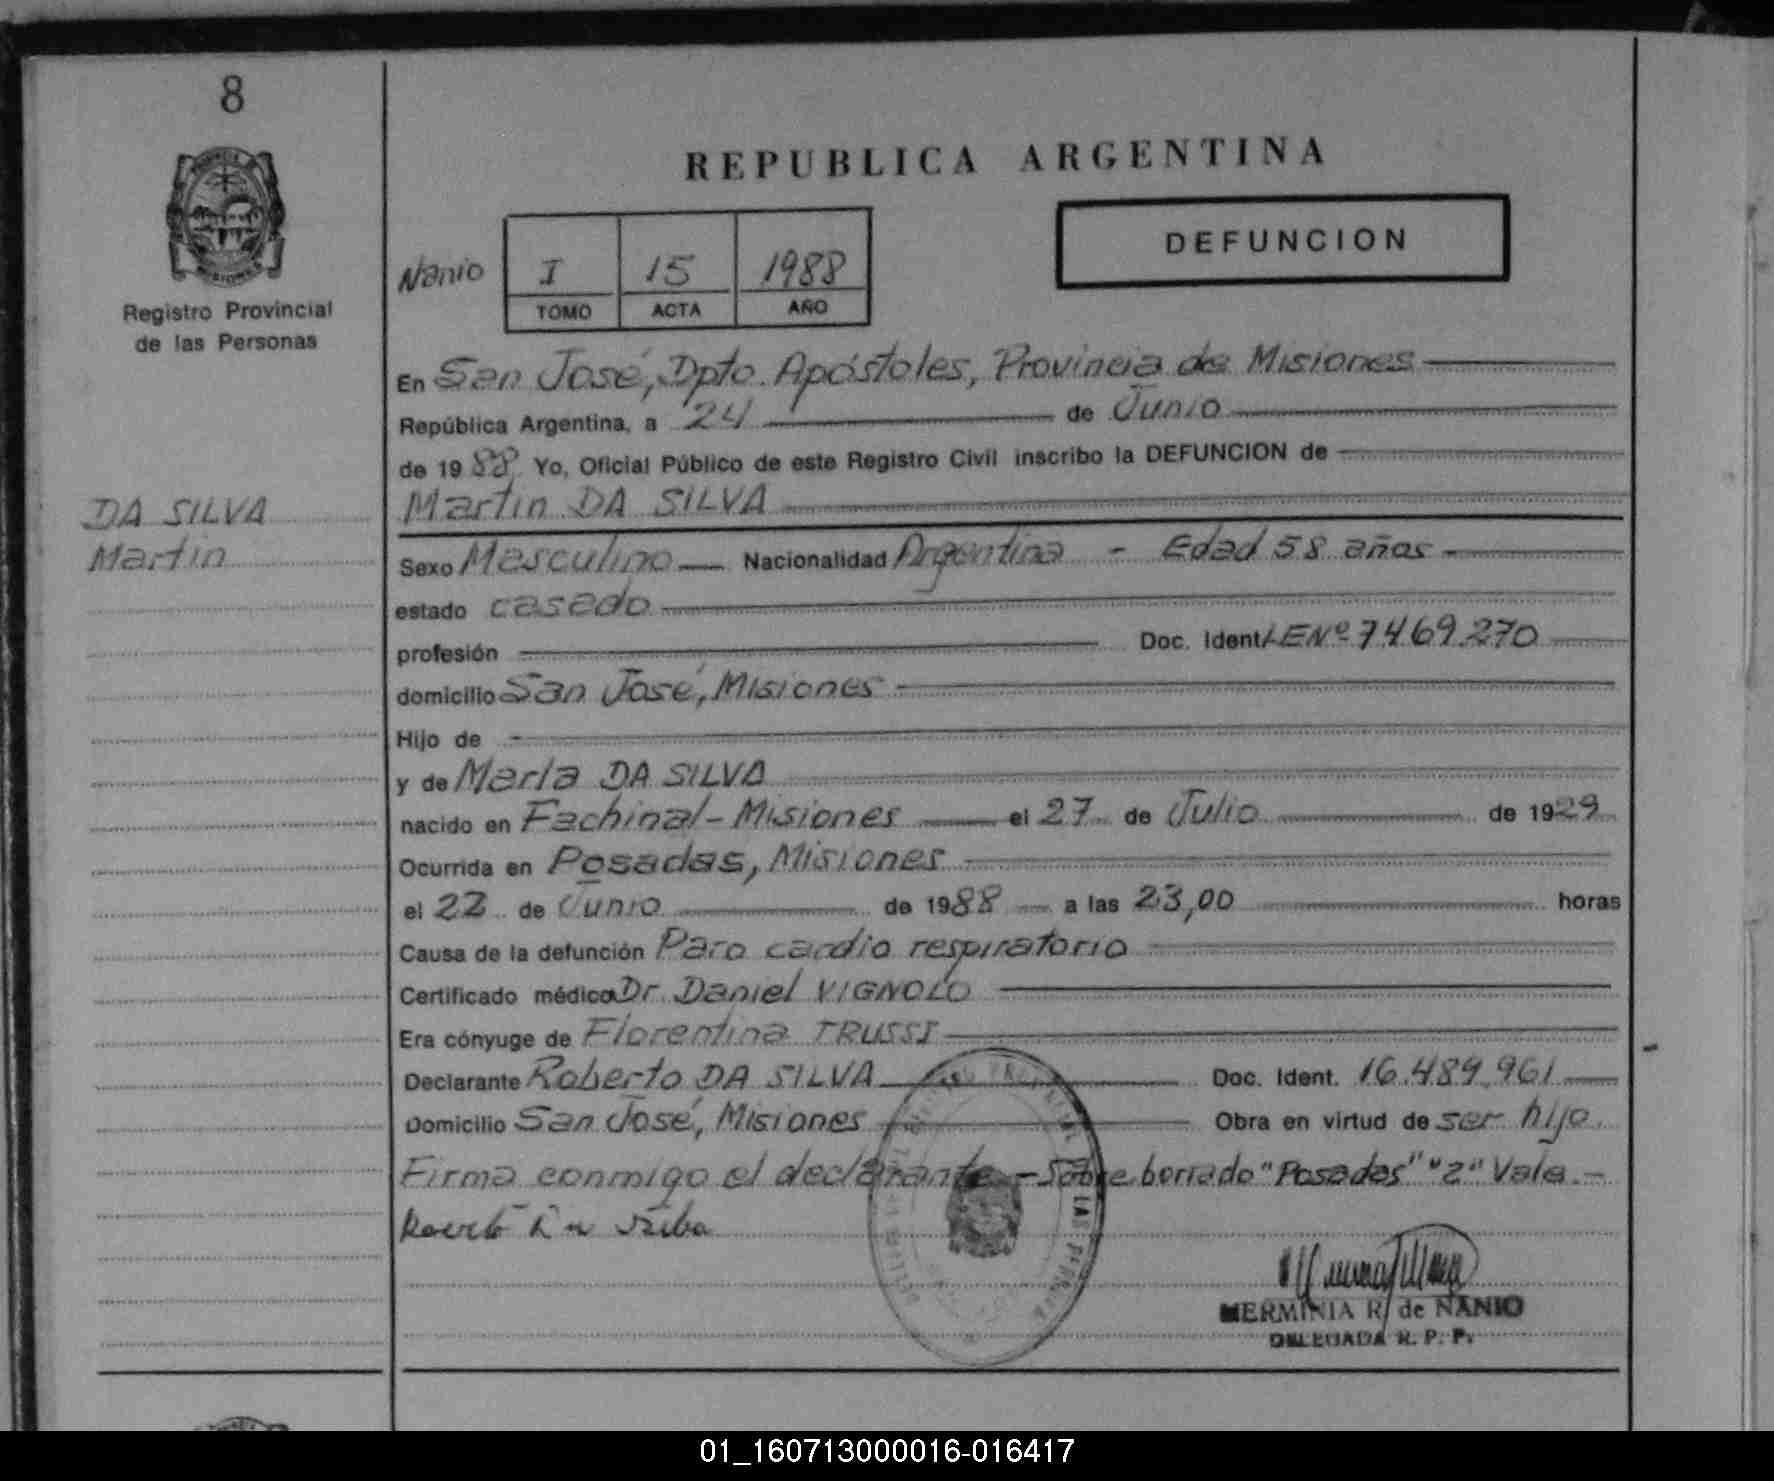 8
REPUBLICA ARGENTINA
DEFUNCION
Nanio I 15 1988
TOMO ACTA AÑO
Registro Provincial
de las Personas
MISIONES
En San José, Dpto. Apóstoles, Provincia de Misiones
República Argentina, a 24 de Junio
de 1988 Yo, Oficial Público de este Registro Civil inscribo la DEFUNCION de
Martin DA SILVA
DA SILVA
Martin
Sexo Masculino Nacionalidad Argentina - Edad 58 años -
estado casado
profesión Doc. Ident LE Nº 7.469.270
domicilio San José, Misiones
Hijo de
y de María DA SILVA
nacido en Fachinal - Misiones el 27 de Julio de 1929
Ocurrida en Posadas, Misiones
el 22 de Junio de 1988 a las 23,00 horas
Causa de la defunción Paro cardio respiratorio
Certificado médico Dr. Daniel VIGNOLO
Era cónyuge de Florentina TRUSSI
Declarante Roberto DA SILVA Doc. Ident. 16.489.961
Domicilio San José, Misiones Obra en virtud de ser hijo.
Firma conmigo el declarante - Sobre borrado "Posadas" "2" Vale. -
HERMINIA R. de NANIO
DELEGADA R. P. P.
01_160713000016-016417